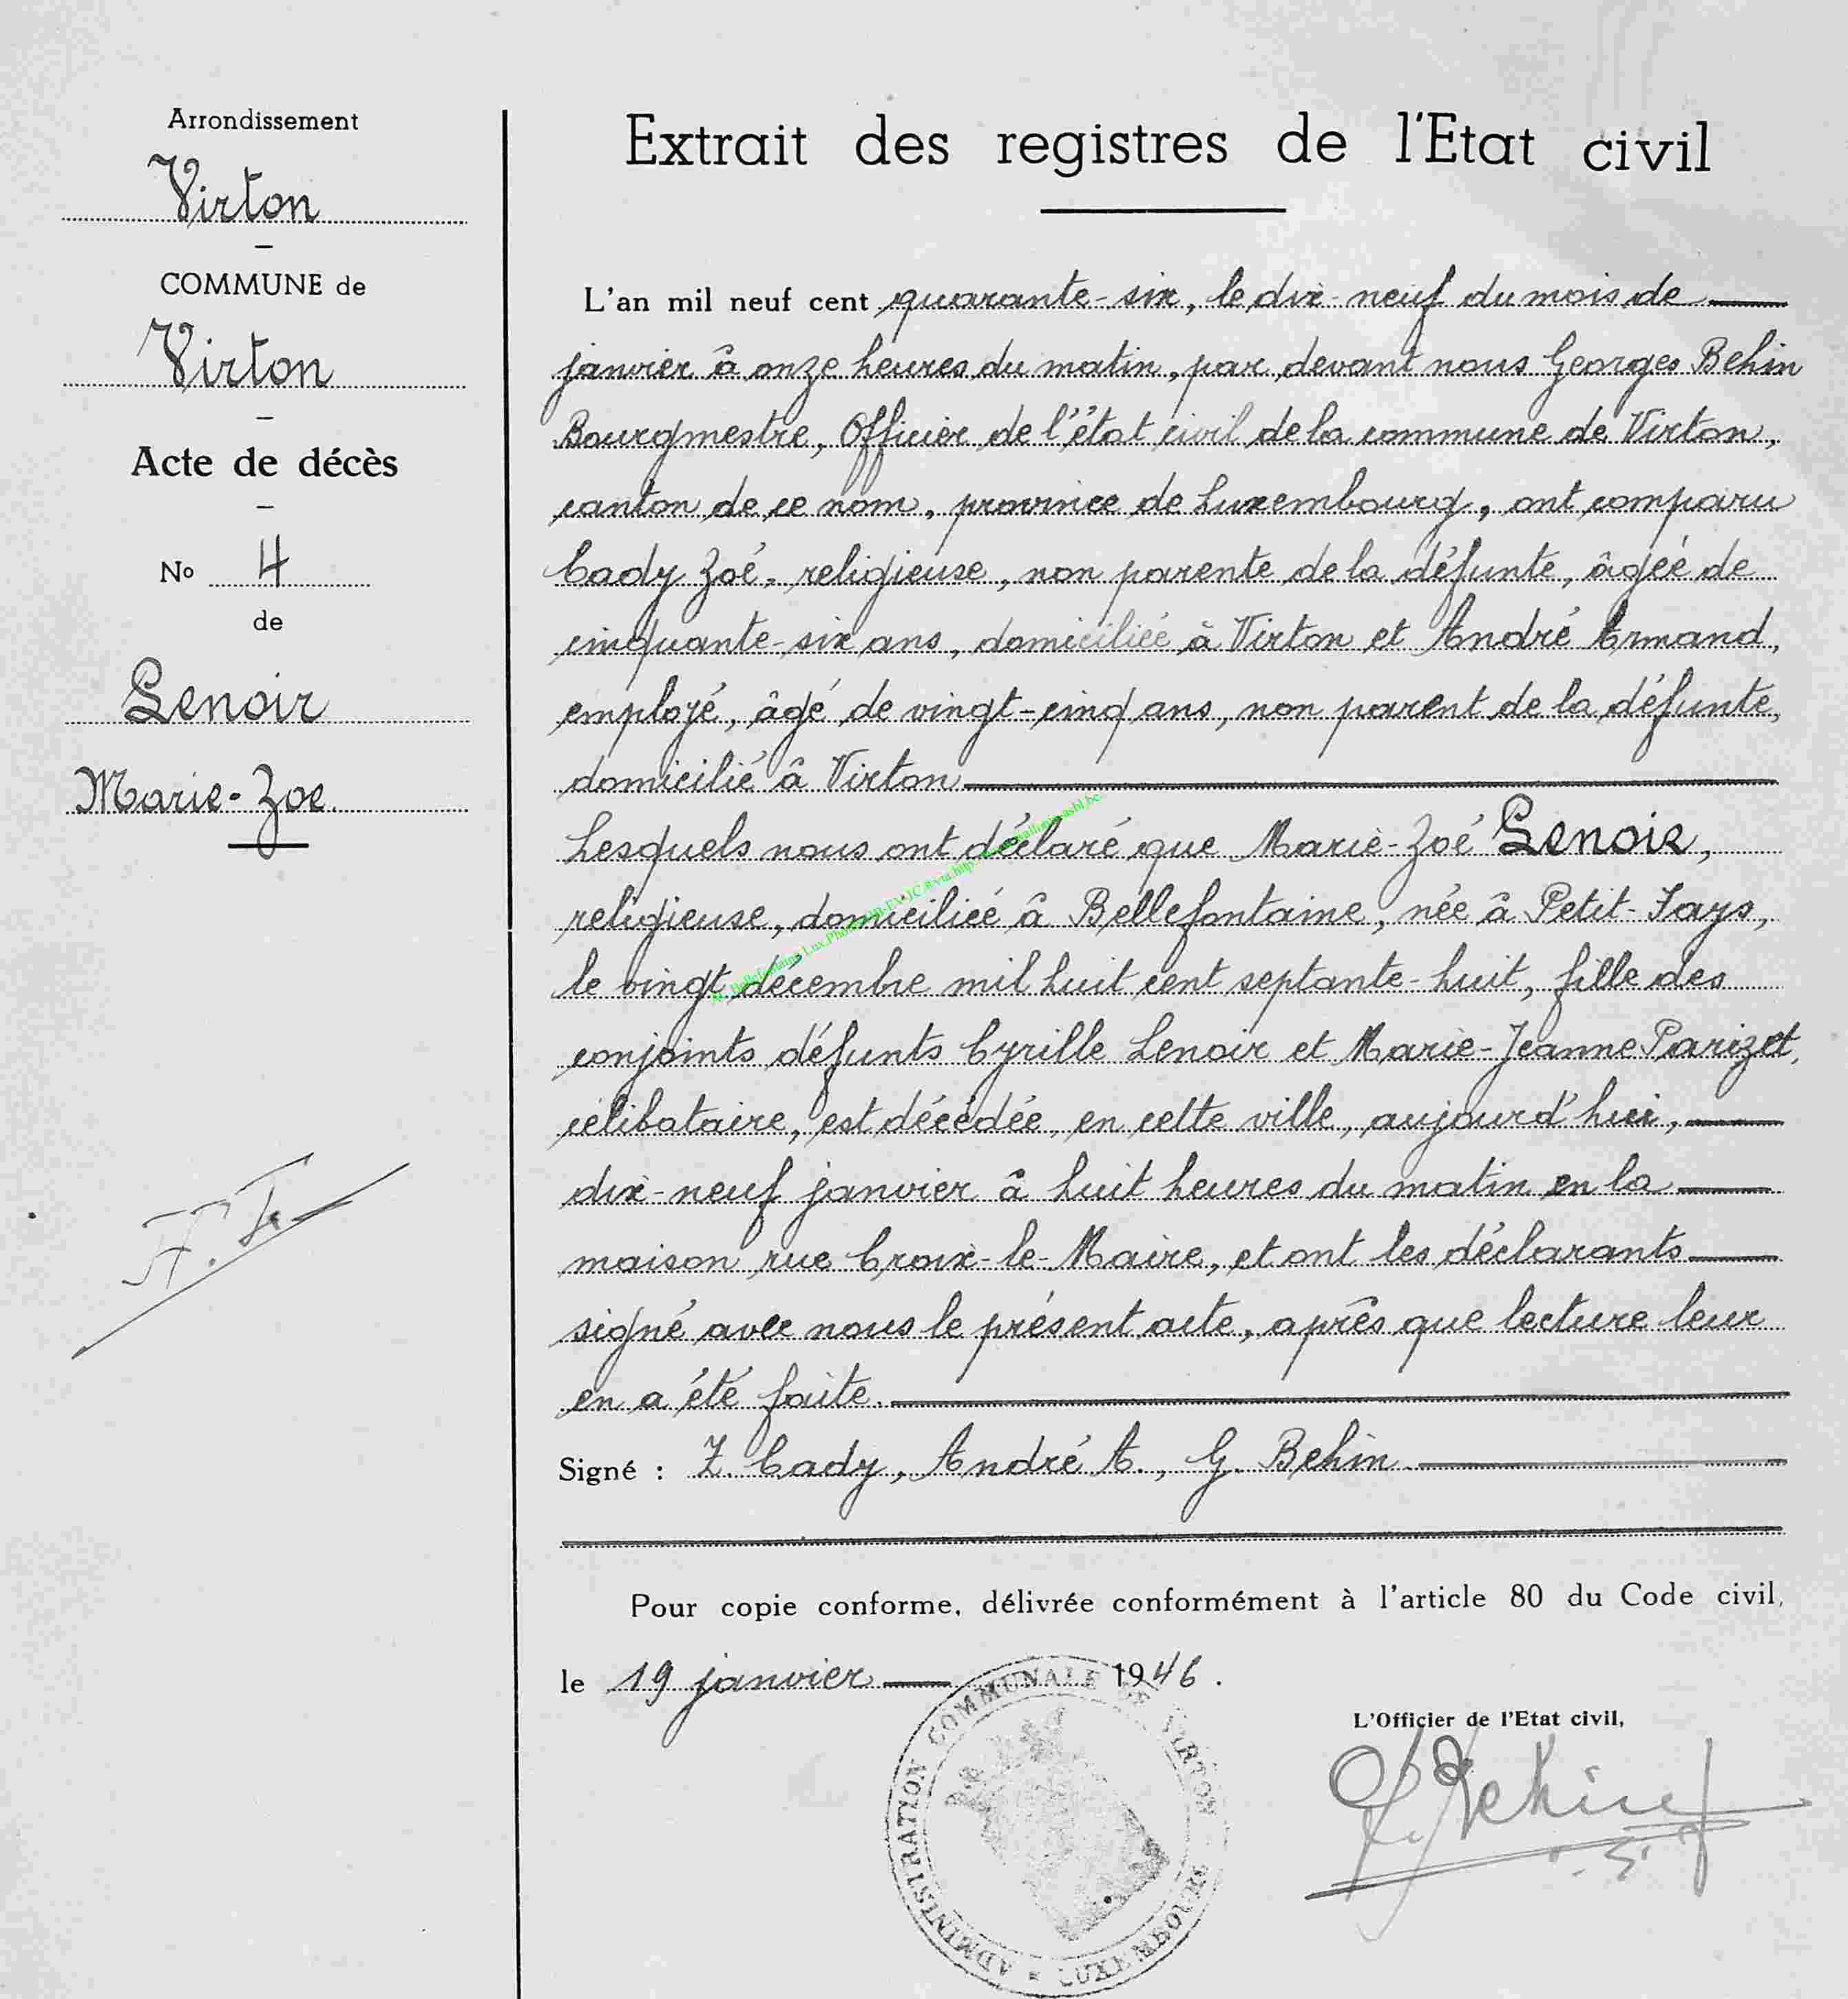 Arrondissement
Virton
COMMUNE de
Virton
Acte de décès
No 4
de
Lenoir
Marie-Zoe
Extrait des registres de l'Etat civil
L'an mil neuf cent quarante-six, le dix-neuf du mois de
janvier à onze heures du matin, par devant nous Georges Behin
Bourgmestre, Officier de l'état civil de la commune de Virton,
canton de ce nom, province de Luxembourg, ont comparu
Cady Zoé, religieuse, non parente de la défunte, âgée de
cinquante-six ans, domiciliée à Virton et André Armand,
employé, âgé de vingt-cinq ans, non parent de la défunte,
domicilié à Virton
Lesquels nous ont déclaré que Marie-Zoé Lenoir,
religieuse, domiciliée à Bellefontaine, née à Petit-Fays,
le vingt décembre mil huit cent septante-huit, fille des
conjoints défunts Cyrille Lenoir et Marie-Jeanne Parizot,
célibataire, est décédée, en cette ville, aujourd'hui,
dix-neuf janvier à huit heures du matin en la
maison rue Croix-le-Maire, et ont les déclarants
signé avec nous le présent acte, après que lecture leur
en a été faite.
Signé : Z. Cady, André A., G. Behin
Pour copie conforme, délivrée conformément à l'article 80 du Code civil,
le 19 janvier 1946.
L'Officier de l'Etat civil,
G Behin
ADMINISTRATION COMMUNALE DE VIRTON
LUXEMBOURG